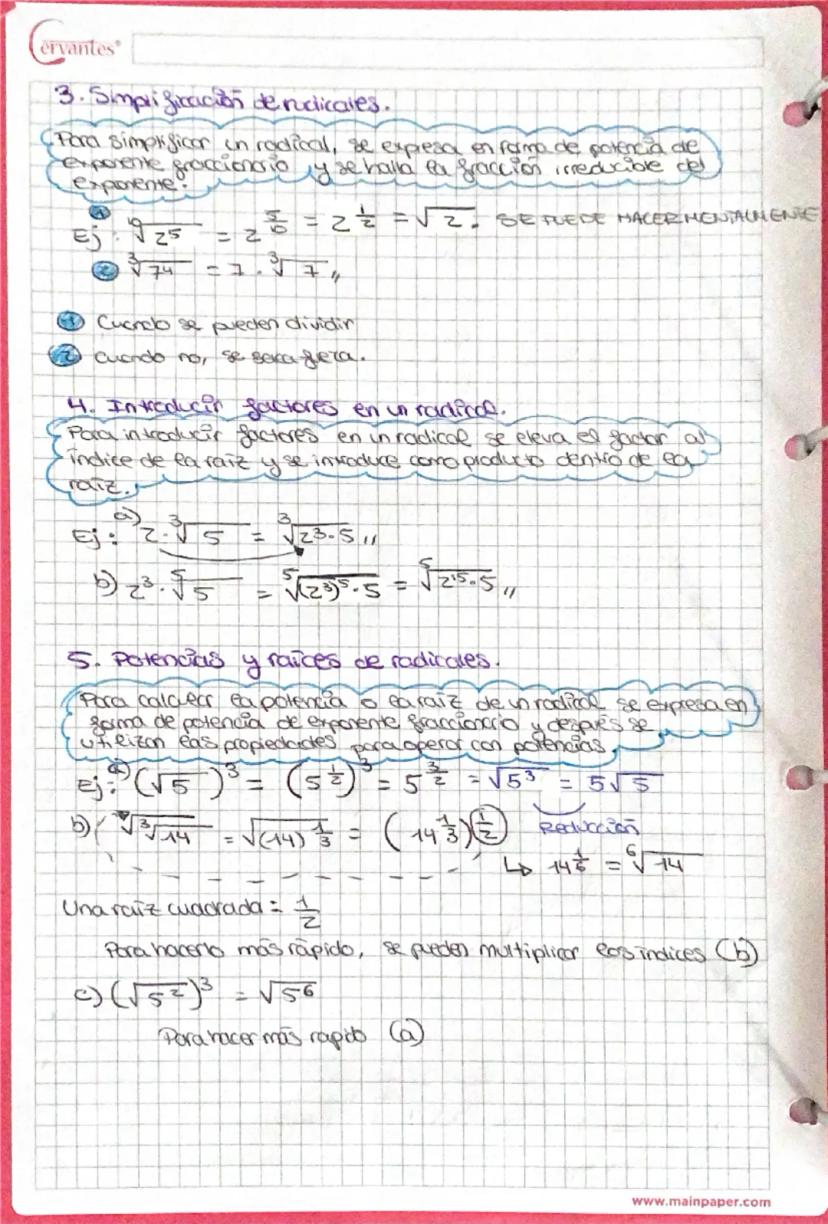 Cervantes®
3. Simplificación de radicales.
Para simplificar un radical, se expresa en forma de potencia de
exponente fraccionario y se halla la fracción irreducible del
exponente.
Ej: ① ¹⁰√2⁵ = 2^(5/10) = 2^(1/2) = √2. SE PUEDE HACER MENTALMENTE
② ³√7⁴ = 7 · ³√7 ,,
① Cuando se pueden dividir
② Cuando no, se saca fuera.
4. Introducir factores en un radical.
Para introducir factores en un radical se eleva el factor al
índice de la raíz y se introduce como producto dentro de la
raíz.
Ej: a) 2 · ³√5 = ³√2³·5 ,,
b) 2³ · ⁵√5 = ⁵√(2³)⁵·5 = ⁵√2¹⁵·5 ,,
5. Potencias y raíces de radicales.
Para calcular la potencia o la raíz de un radical se expresa en
forma de potencia de exponente fraccionario y después se
utilizan las propiedades para operar con potencias.
Ej: a) (√5)³ = (5^(1/2))³ = 5^(3/2) = √5³ = 5√5
Reducción
b) √³√14 = √(14)^(1/3) = (14^(1/3))^(1/2)
↳ 14^(1/6) = ⁶√14
Una raíz cuadrada = 1/2
Para hacerlo más rápido, se pueden multiplicar los índices (b)
c) (√5²)³ = √5⁶
Para hacer más rapido (a)
www.mainpaper.com